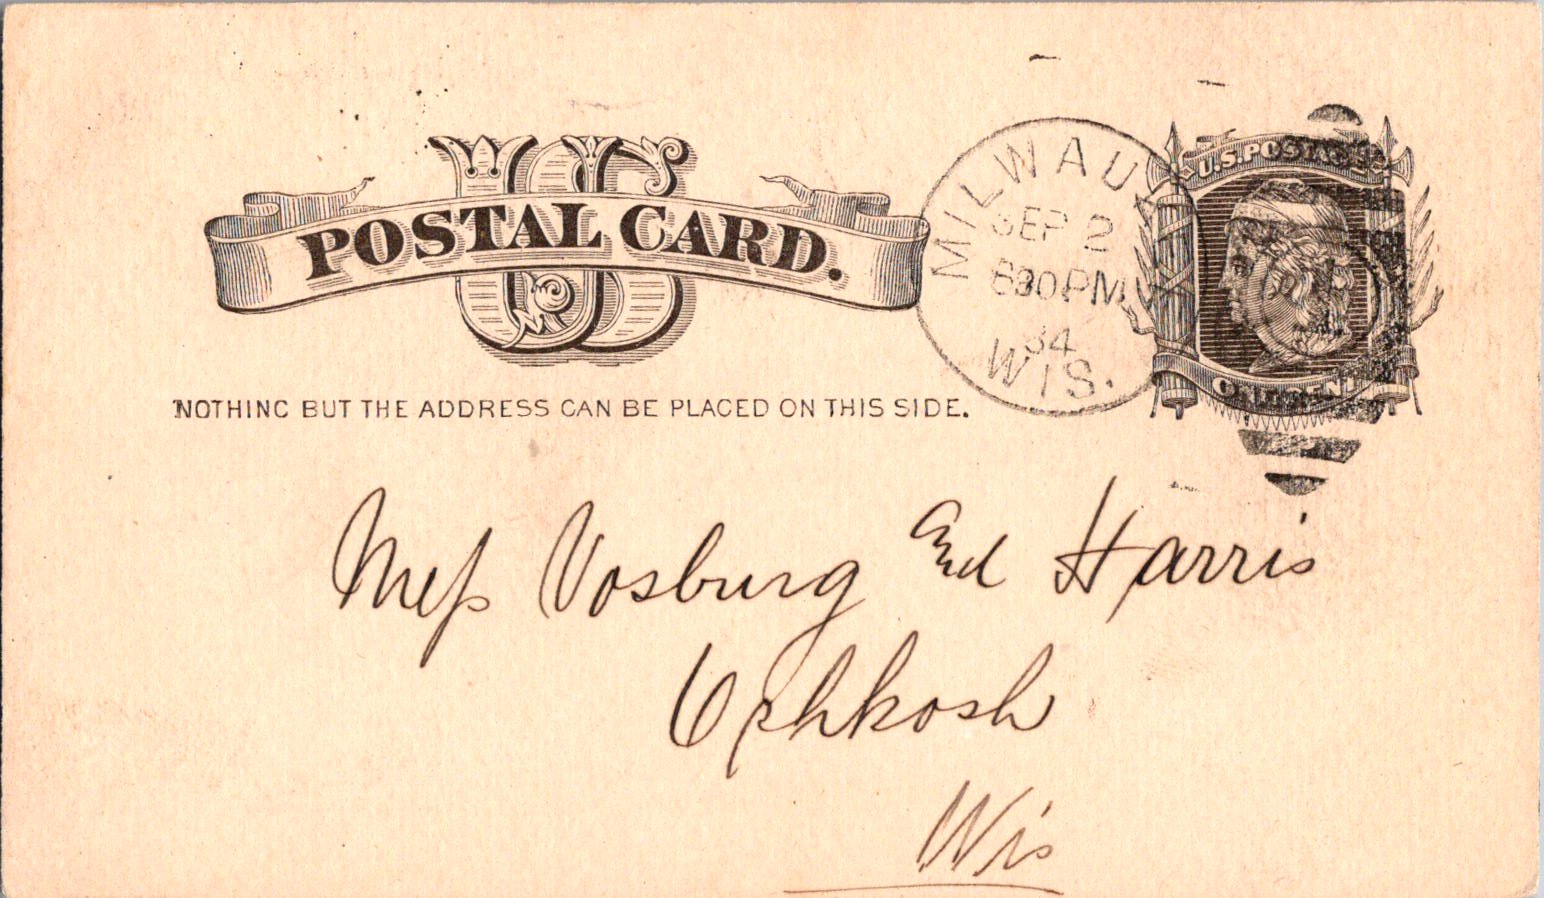 US
POSTAL CARD.
MILWAUKEE
SEP 2
630PM
84
WIS.
U.S. POSTAGE
ONE CENT
NOTHING BUT THE ADDRESS CAN BE PLACED ON THIS SIDE.
Mess Vosburg and Harris
Oshkosh
Wis